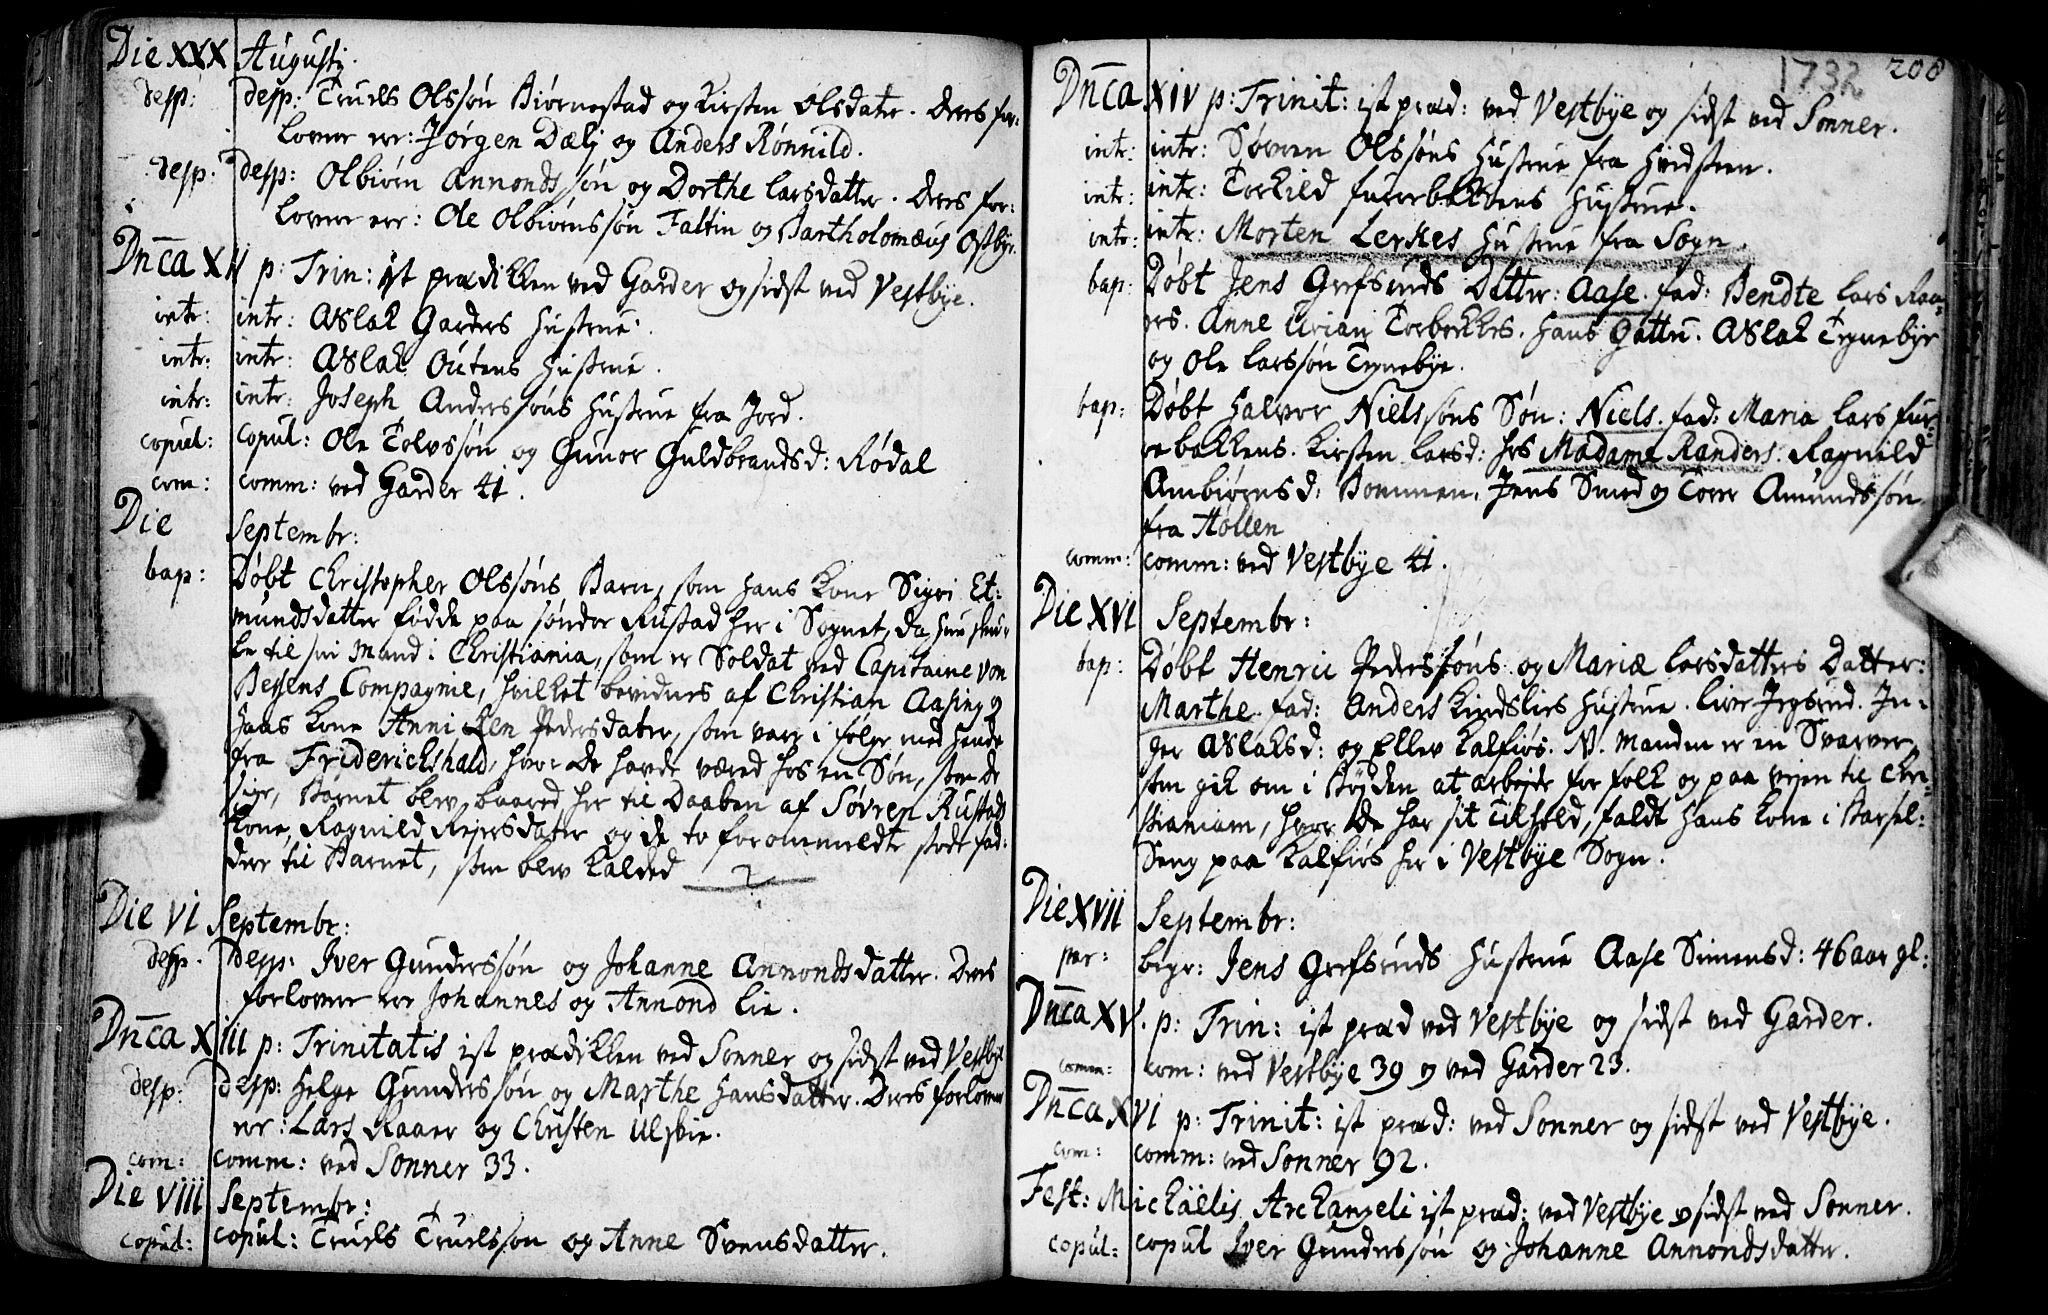 Die XXX Augustj.
desp: desp: Truels Olssøn Biørnestad og Kirsten Olsdatr. Deres for-
lover er: Jørgen Dælj og Anders Rønnild.
desp. desp: Olbiørn Annondssøn og Dorthe Larsdatter. Deres for:
lover er: Ole Olbiørnssøn Faltin og Bartholomæus Østbye.
Dn̄ca XII p: Trin: ist prædikken ved Garder og sidst ved Vestbÿe.
intr: intr: Aslak Garders Hustrue.
intr: intr: Aslak Outens Hustrue.
intr: intr: Joseph Anderssøns Hustrue fra Jord.
copul: copul: Ole Tolvssøn og Gunor Guldbrandsd: Rødal
com: comm: ved Garder 41.
Die Septembr:
bap: Døbt Christopher Olssøns Barn, som hans Kone Sigri Et-
mundsdatter fødde paa søndor Rustad her i Sognet, da hun skul-
le til sin Mand i Christiania, som er Soldat ved Capitaine von
Beyens Compagnie, hvilket bevidnes af Christian Aasing og
hans Kone Anni Pedersdater, som var i følge med hende
fra Friderichshald, hvor de havde været hos en Søn, som de
sige, Barnet blev baaret her til Daaben af Søvren Rustads
Kone, Ragnild Rejersdater og de to forommeldte stode fad:
dere til Barnet, som blev kalded ?
Die VI Septembr:
desp. Desp: Iver Gunderssøn og Johanne Annondsdatter. Deres
forlover er Johannes og Annond Lie.
Dn̄ca XIII p: Trinitatis ist prædikken ved Sonner og sidst ved Vestbye
desp: desp: Helge Gunderssøn og Marthe Hansdatter. Deres forlover
er: Lars Raaer og Christen Ulsvie.
com: comm: ved Sonner 33.
Die VIII Septembr:
copul: copul: Truels Truelssøn og Anne Svensdatter.
1732 208
Dn̄ca XIV p: Trinit: ist præd: ved Vestbÿe og sidst ved Sonner.
intr: intr: Søvren Olssøns Hustrue fra Hvidsteen.
intr: intr: Torkild Furebakkens Hustrue.
intr: intr: Morten Lerkes Hustrue fra Sogn.
bap: Døbt Jens Grefsruds Datter: Aase. fad: Bendte Lars Raa-
ers. Anne Torbekkes. Hans Gattu. Aslak Tegnebye
og Ole Larssøn Tegnebÿe.
bap: Døbt Halvor Nielssøns Søn: Niels. fad: Maria Lars Fur-
rebakkens. Kirsten Larsd: hos Madame Randers. Ragnild
Ambiørnsd: Bommen, Jens Smed og Tore Amundssøn
fra Høllen
comm: comm: ved Vestbÿe 41.
Die XVI Septembr:
bap: Døbt Henric Pederssøns og Mariæ Larsdatters Datter:
Marthe. fad: Anders Kindslies Hustrue. Live Jegsrud. In-
ger Aslaksd: og Ellev Kalfiøs. N. Manden er en Svarver
som gik om i Bÿgden at arbejde for folk og paa vejen til Chri-
stianiam, hvor de har sit Tilhold, faldt hans Kone i Barsel-
Seng paa Kalfiøs her i Vestbÿe Sogn.
Die XVII Septembr:
begr: Jens Grefsruds Hustrue Aase Simensd: 46 aar gl:
Dn̄ca XV. p: Trin: ist præd ved Vestbÿe og sidst ved Garder.
comm: com: ved Vestbÿe 39 og ved Garder 23.
Dn̄ca XVI p: Trinit: ist præd: ved Sonner og sidst ved Vestbÿe.
com: comm: ved Sonner 92.
Fest: Michaëlis Archangeli ist præd: ved Vestbÿe og sidst ved Sonner.
copul: copul Iver Gunderssøn og Johanne Annondsdatter.